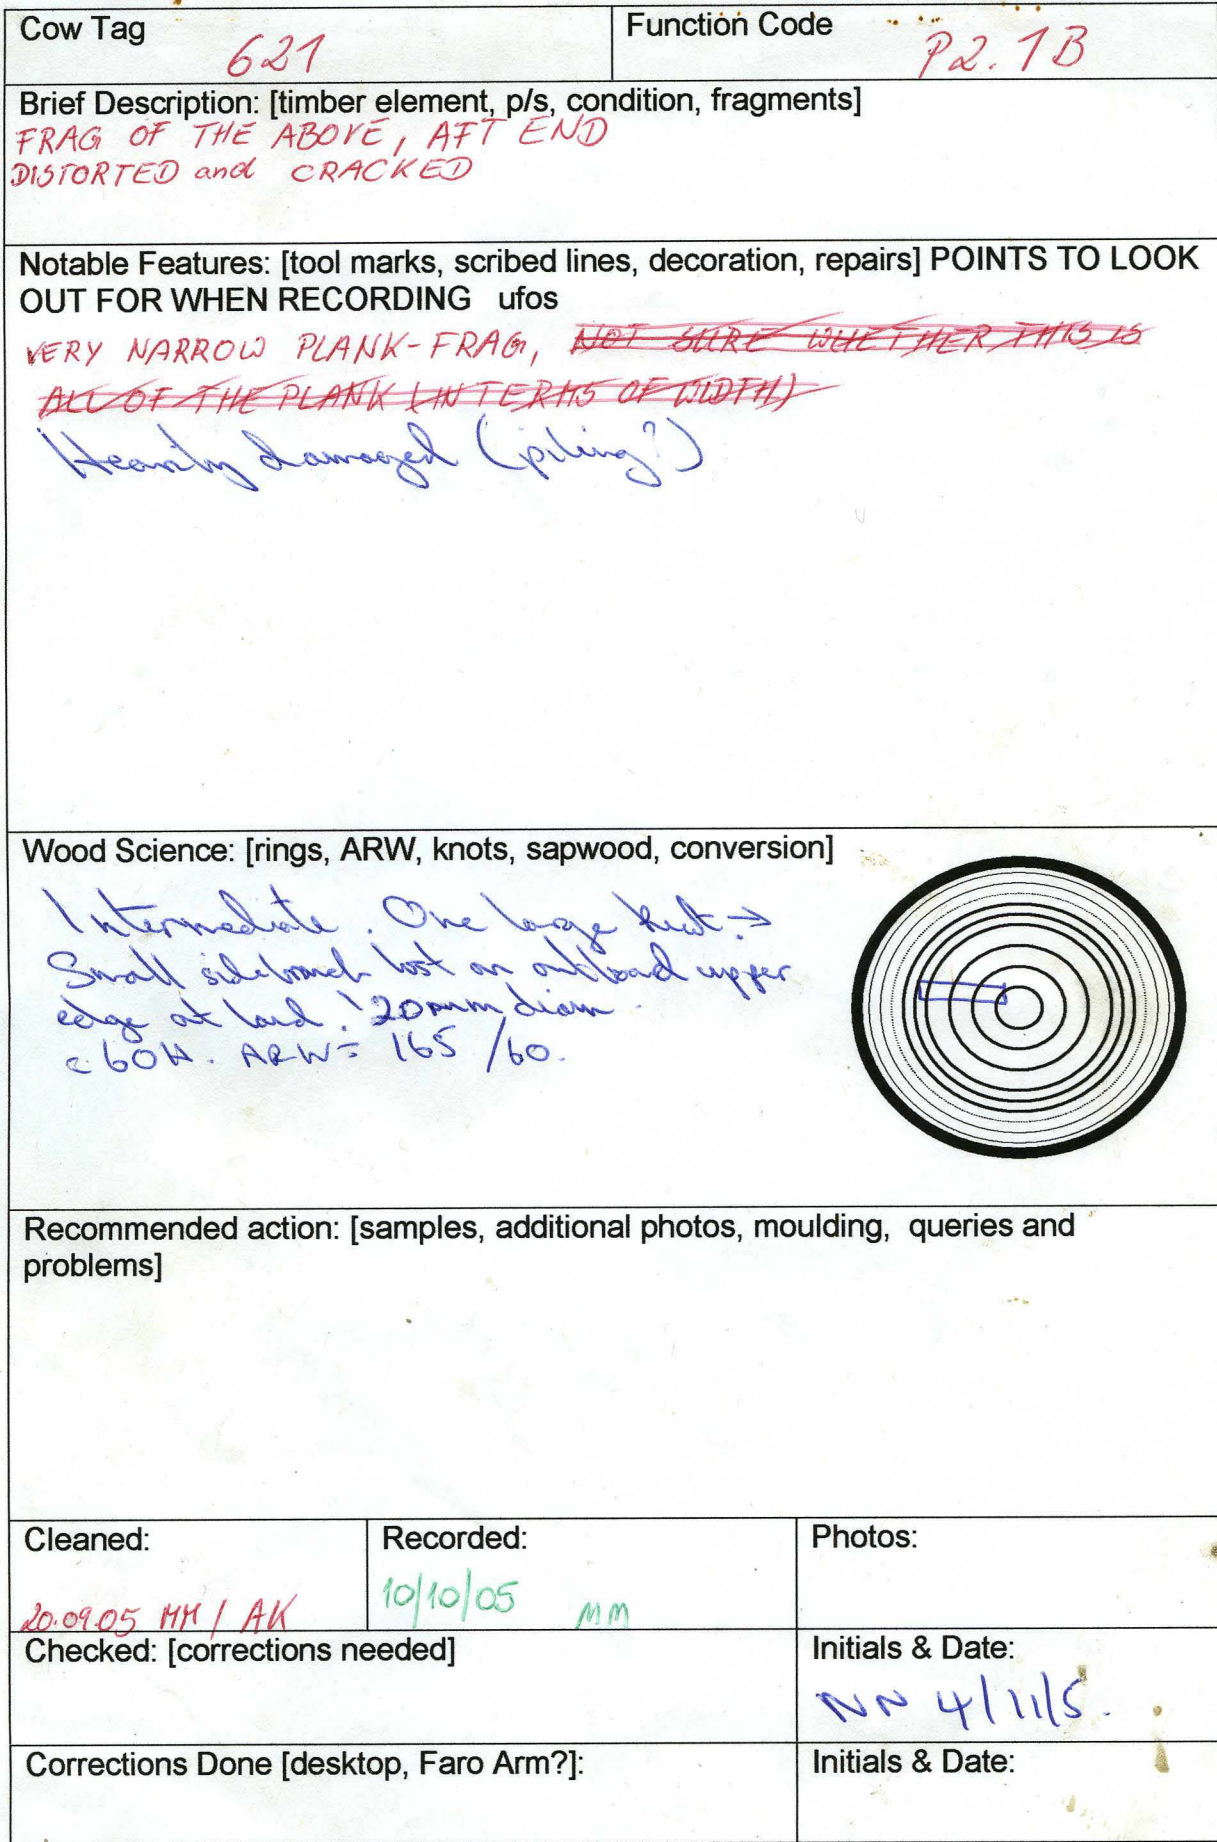 Cow Tag 621
Function Code P2.1B
Brief Description: [timber element, p/s, condition, fragments]
FRAG OF THE ABOVE, AFT END
DISTORTED and CRACKED
Notable Features: [tool marks, scribed lines, decoration, repairs] POINTS TO LOOK
OUT FOR WHEN RECORDING ufos
VERY NARROW PLANK-FRAG, NOT SURE WHETHER THIS IS
ALL OF THE PLANK (IN TERMS OF WIDTH)
Heavily damaged (piling?)
Wood Science: [rings, ARW, knots, sapwood, conversion]
Intermediate. One large knot →
Small sidebranch lost on outboard upper
edge at 20mm diam
c 60H. ARW = 165 / 60.
Recommended action: [samples, additional photos, moulding, queries and
problems]
Cleaned:
20.09.05 MM / AK
Recorded:
10/10/05 MM
Photos:
Checked: [corrections needed]
Initials & Date:
NN 4/11/5.
Corrections Done [desktop, Faro Arm?]:
Initials & Date: